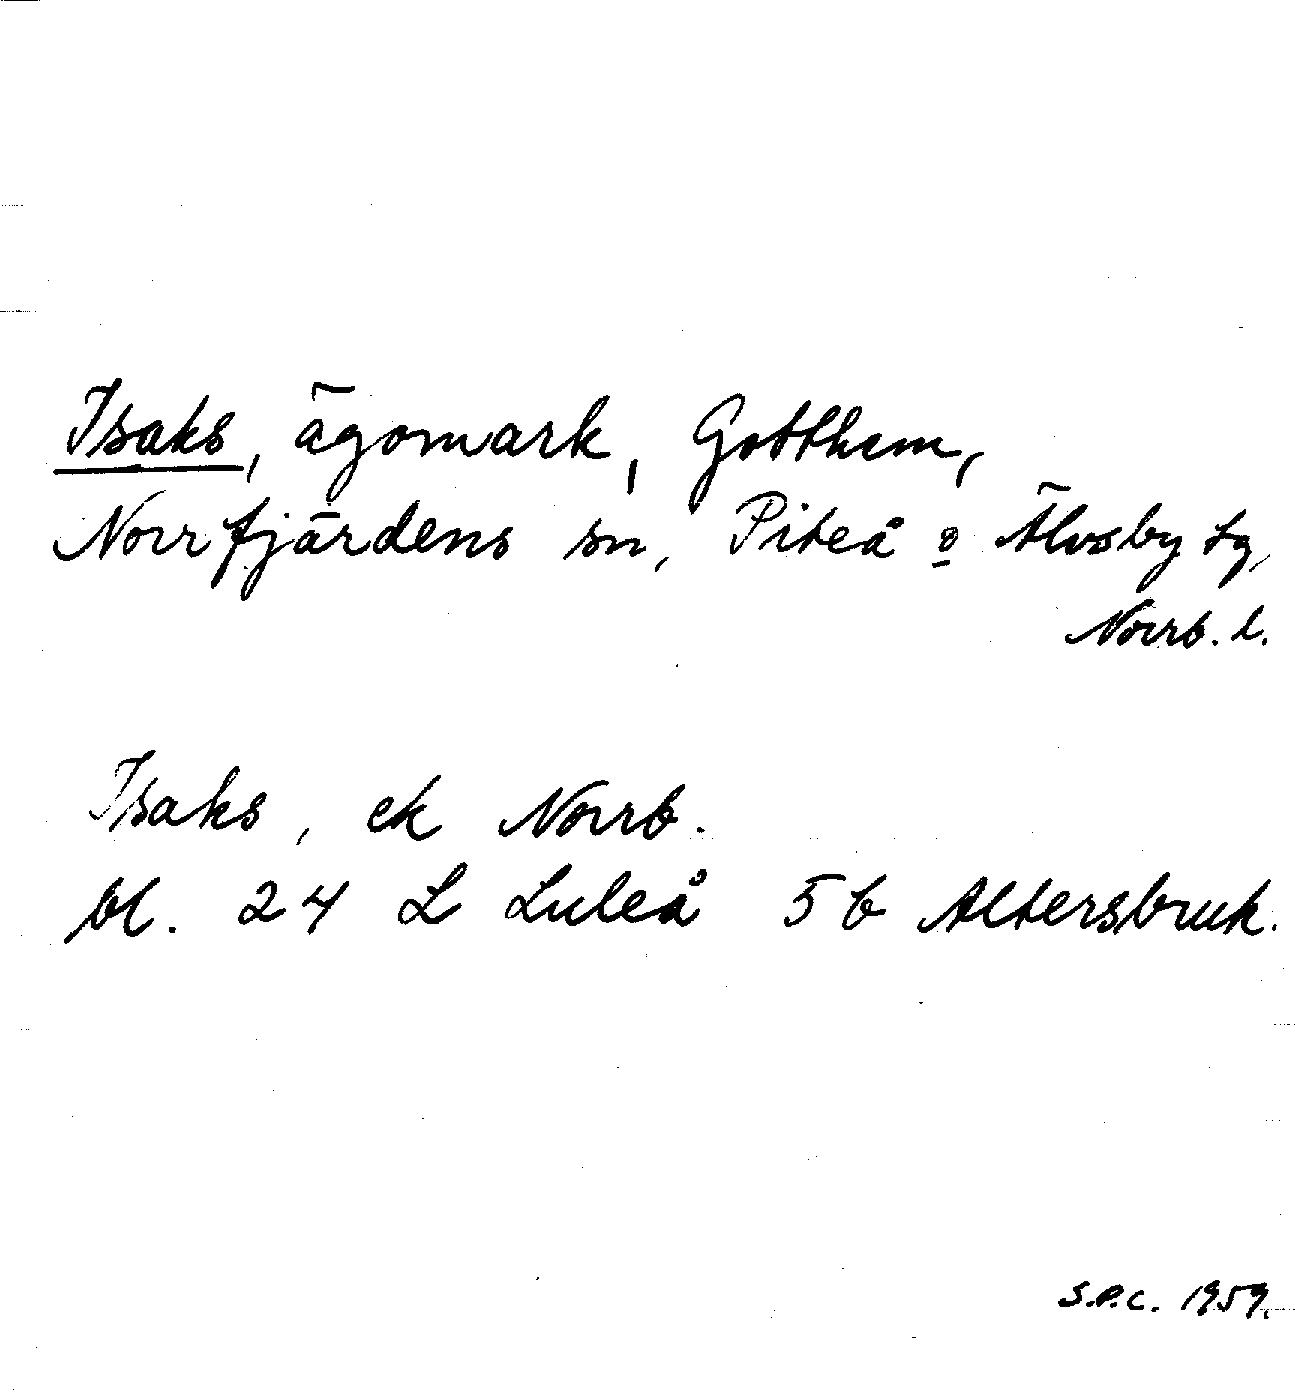 Isaks, ägomark, Gotthem,
Norrfjärdens sn, Piteå o Älvsby tg,
Norrb. l.
Isaks, ek Norrb.
bl. 24 L Luleå 5b Altersbruk.
S.P.C. 1959.